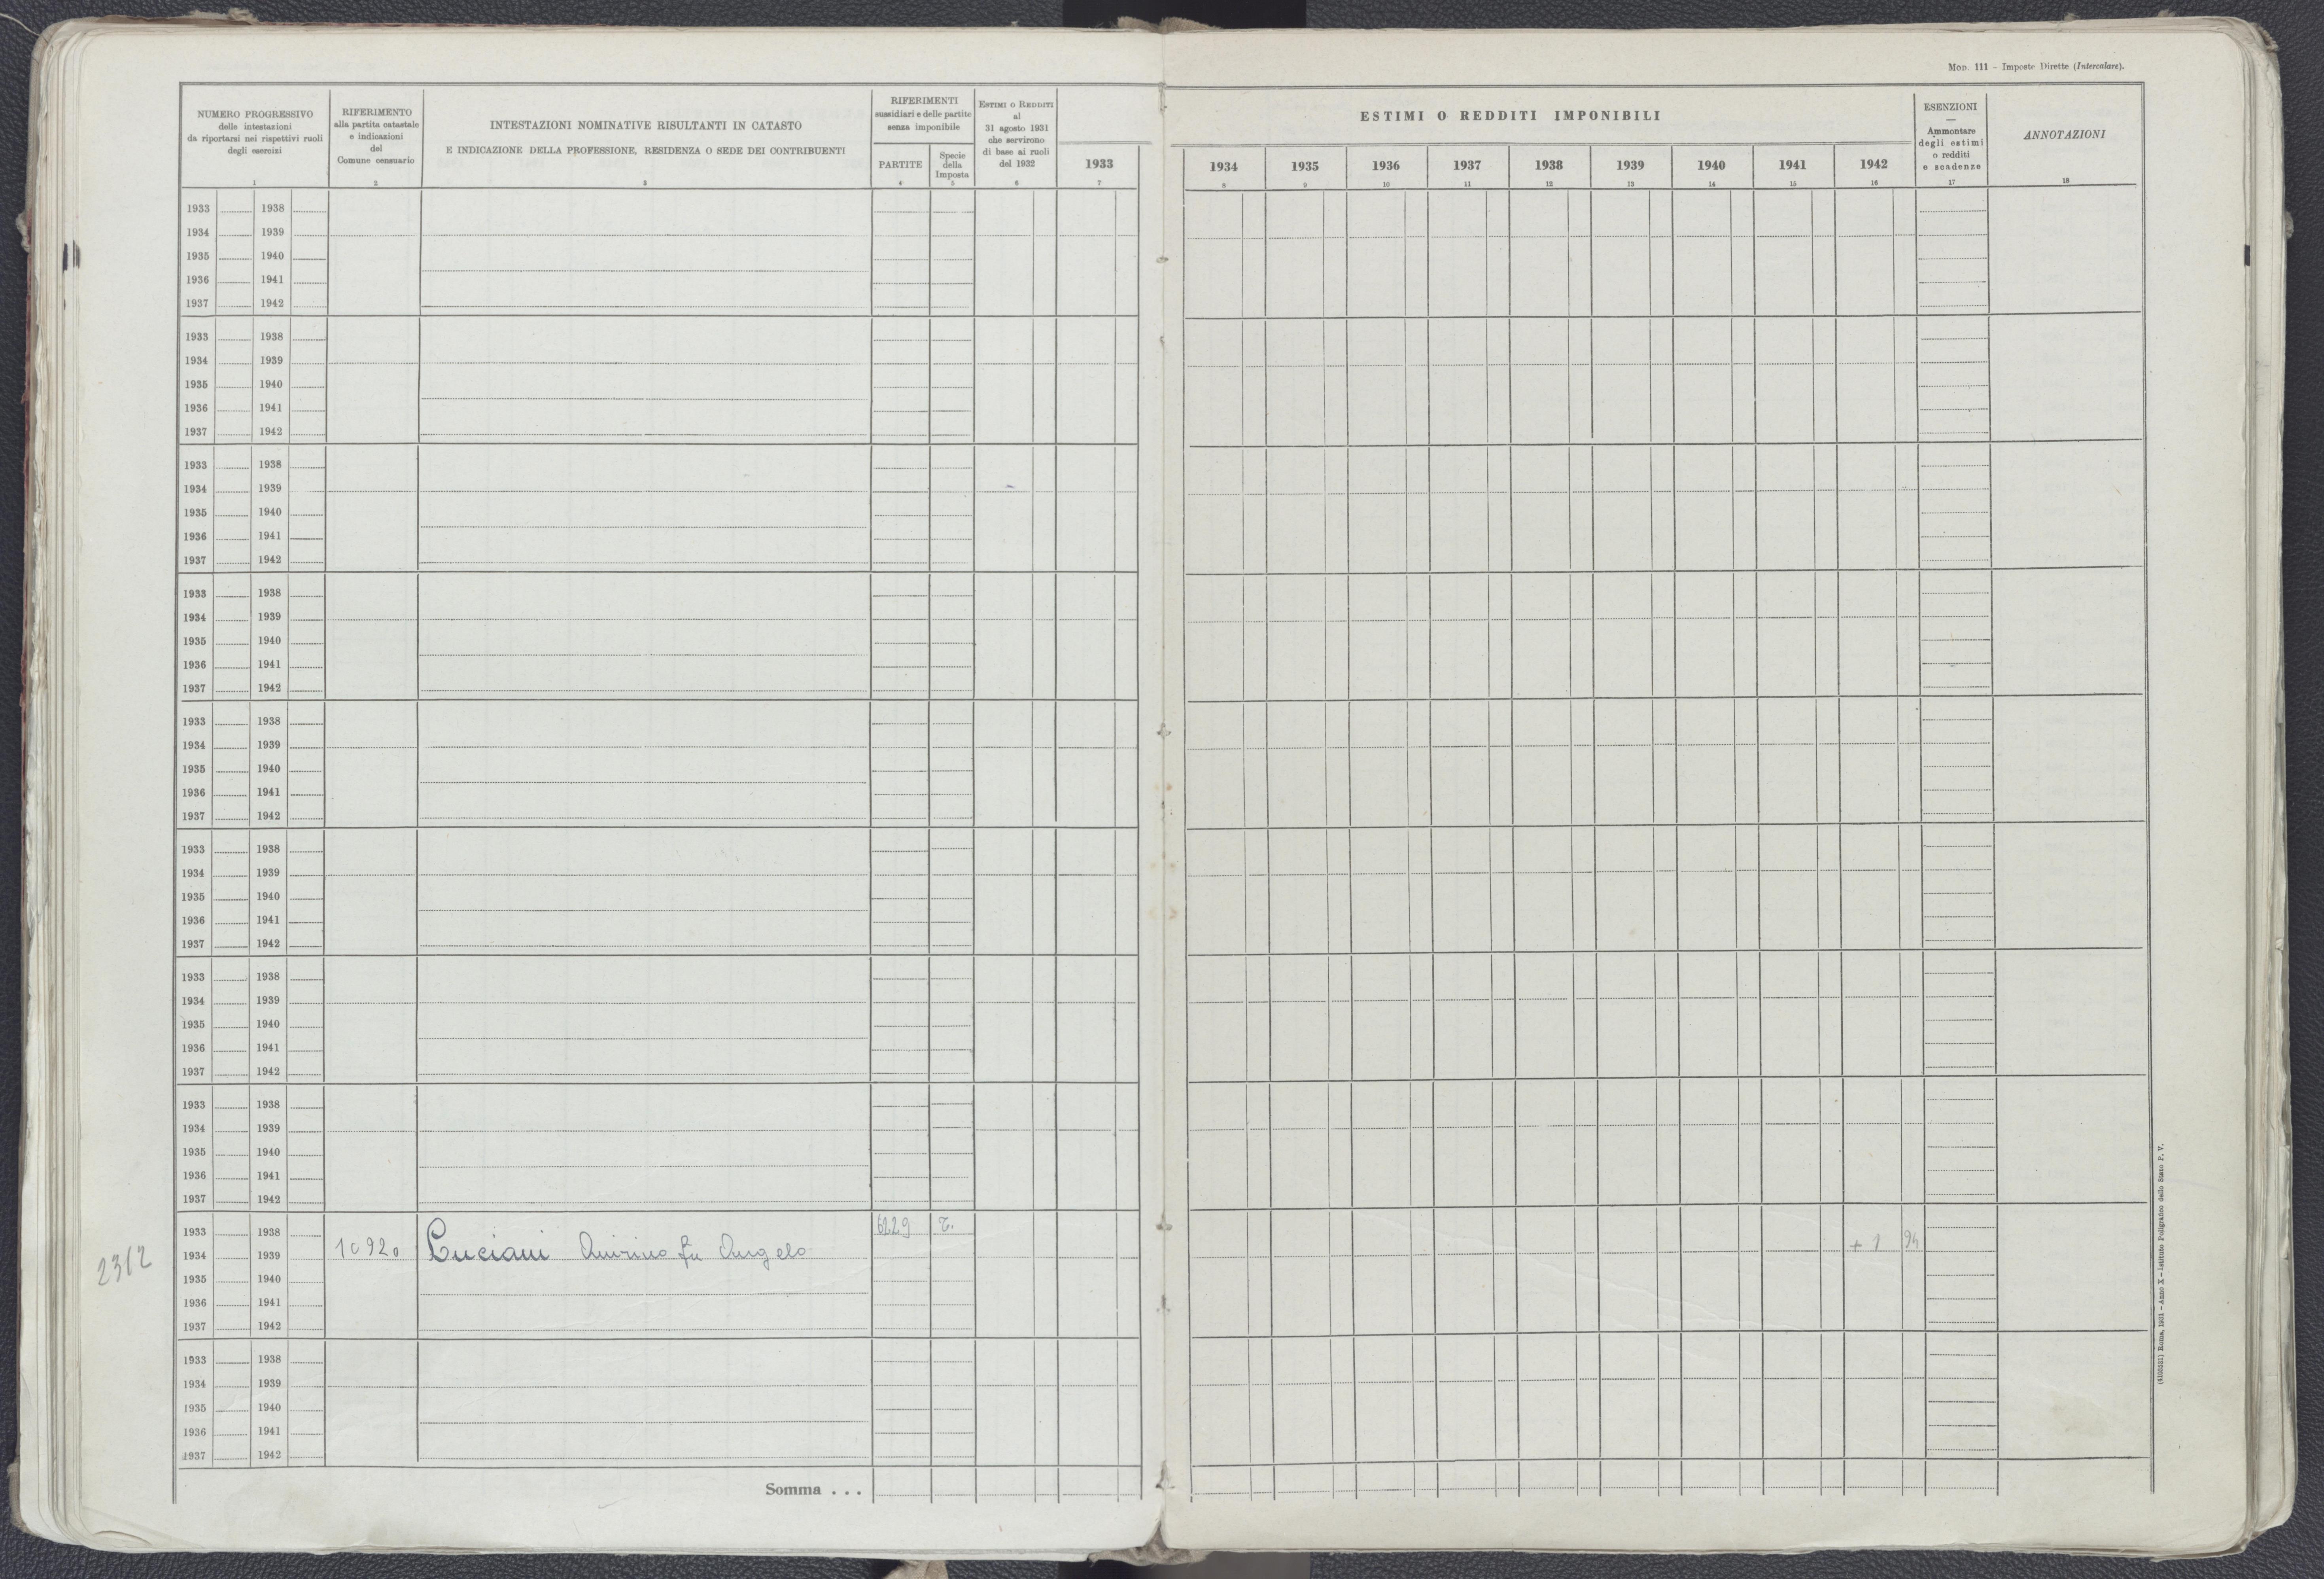 Mod. 111 – Imposte Dirette (Intercalare).
NUMERO PROGRESSIVO
delle intestazioni
da riportarsi nei rispettivi ruoli
degli esercizi
1
RIFERIMENTO
alla partita catastale
e indicazioni
del
Comune censuario
2
INTESTAZIONI NOMINATIVE RISULTANTI IN CATASTO
E INDICAZIONE DELLA PROFESSIONE, RESIDENZA O SEDE DEI CONTRIBUENTI
3
RIFERIMENTI
sussidiari e delle partite
senza imponibile
PARTITE
4
Specie
della
Imposta
5
Estimi o Redditi
al
31 agosto 1931
che servirono
di base ai ruoli
del 1932
6
ESTIMI O REDDITI IMPONIBILI
1933 1934 1935 1936 1937 1938 1939 1940 1941 1942
7 8 9 10 11 12 13 14 15 16
ESENZIONI
—
Ammontare
degli estimi
o redditi
e scadenze
17
ANNOTAZIONI
18
1933 1938
1934 1939
1935 1940
1936 1941
1937 1942
1933 1938
1934 1939
1935 1940
1936 1941
1937 1942
1933 1938
1934 1939
1935 1940
1936 1941
1937 1942
1933 1938
1934 1939
1935 1940
1936 1941
1937 1942
1933 1938
1934 1939
1935 1940
1936 1941
1937 1942
1933 1938
1934 1939
1935 1940
1936 1941
1937 1942
1933 1938
1934 1939
1935 1940
1936 1941
1937 1942
1933 1938
1934 1939
1935 1940
1936 1941
1937 1942
1933 1938 6229
2312 1934 1939 10920 Luciani Quirino fu Angelo + 1 94
1935 1940
1936 1941
1937 1942
1933 1938
1934 1939
1935 1940
1936 1941
1937 1942
Somma . . .
Roma, 1931 – Anno X – Istituto Poligrafico dello Stato P. V.